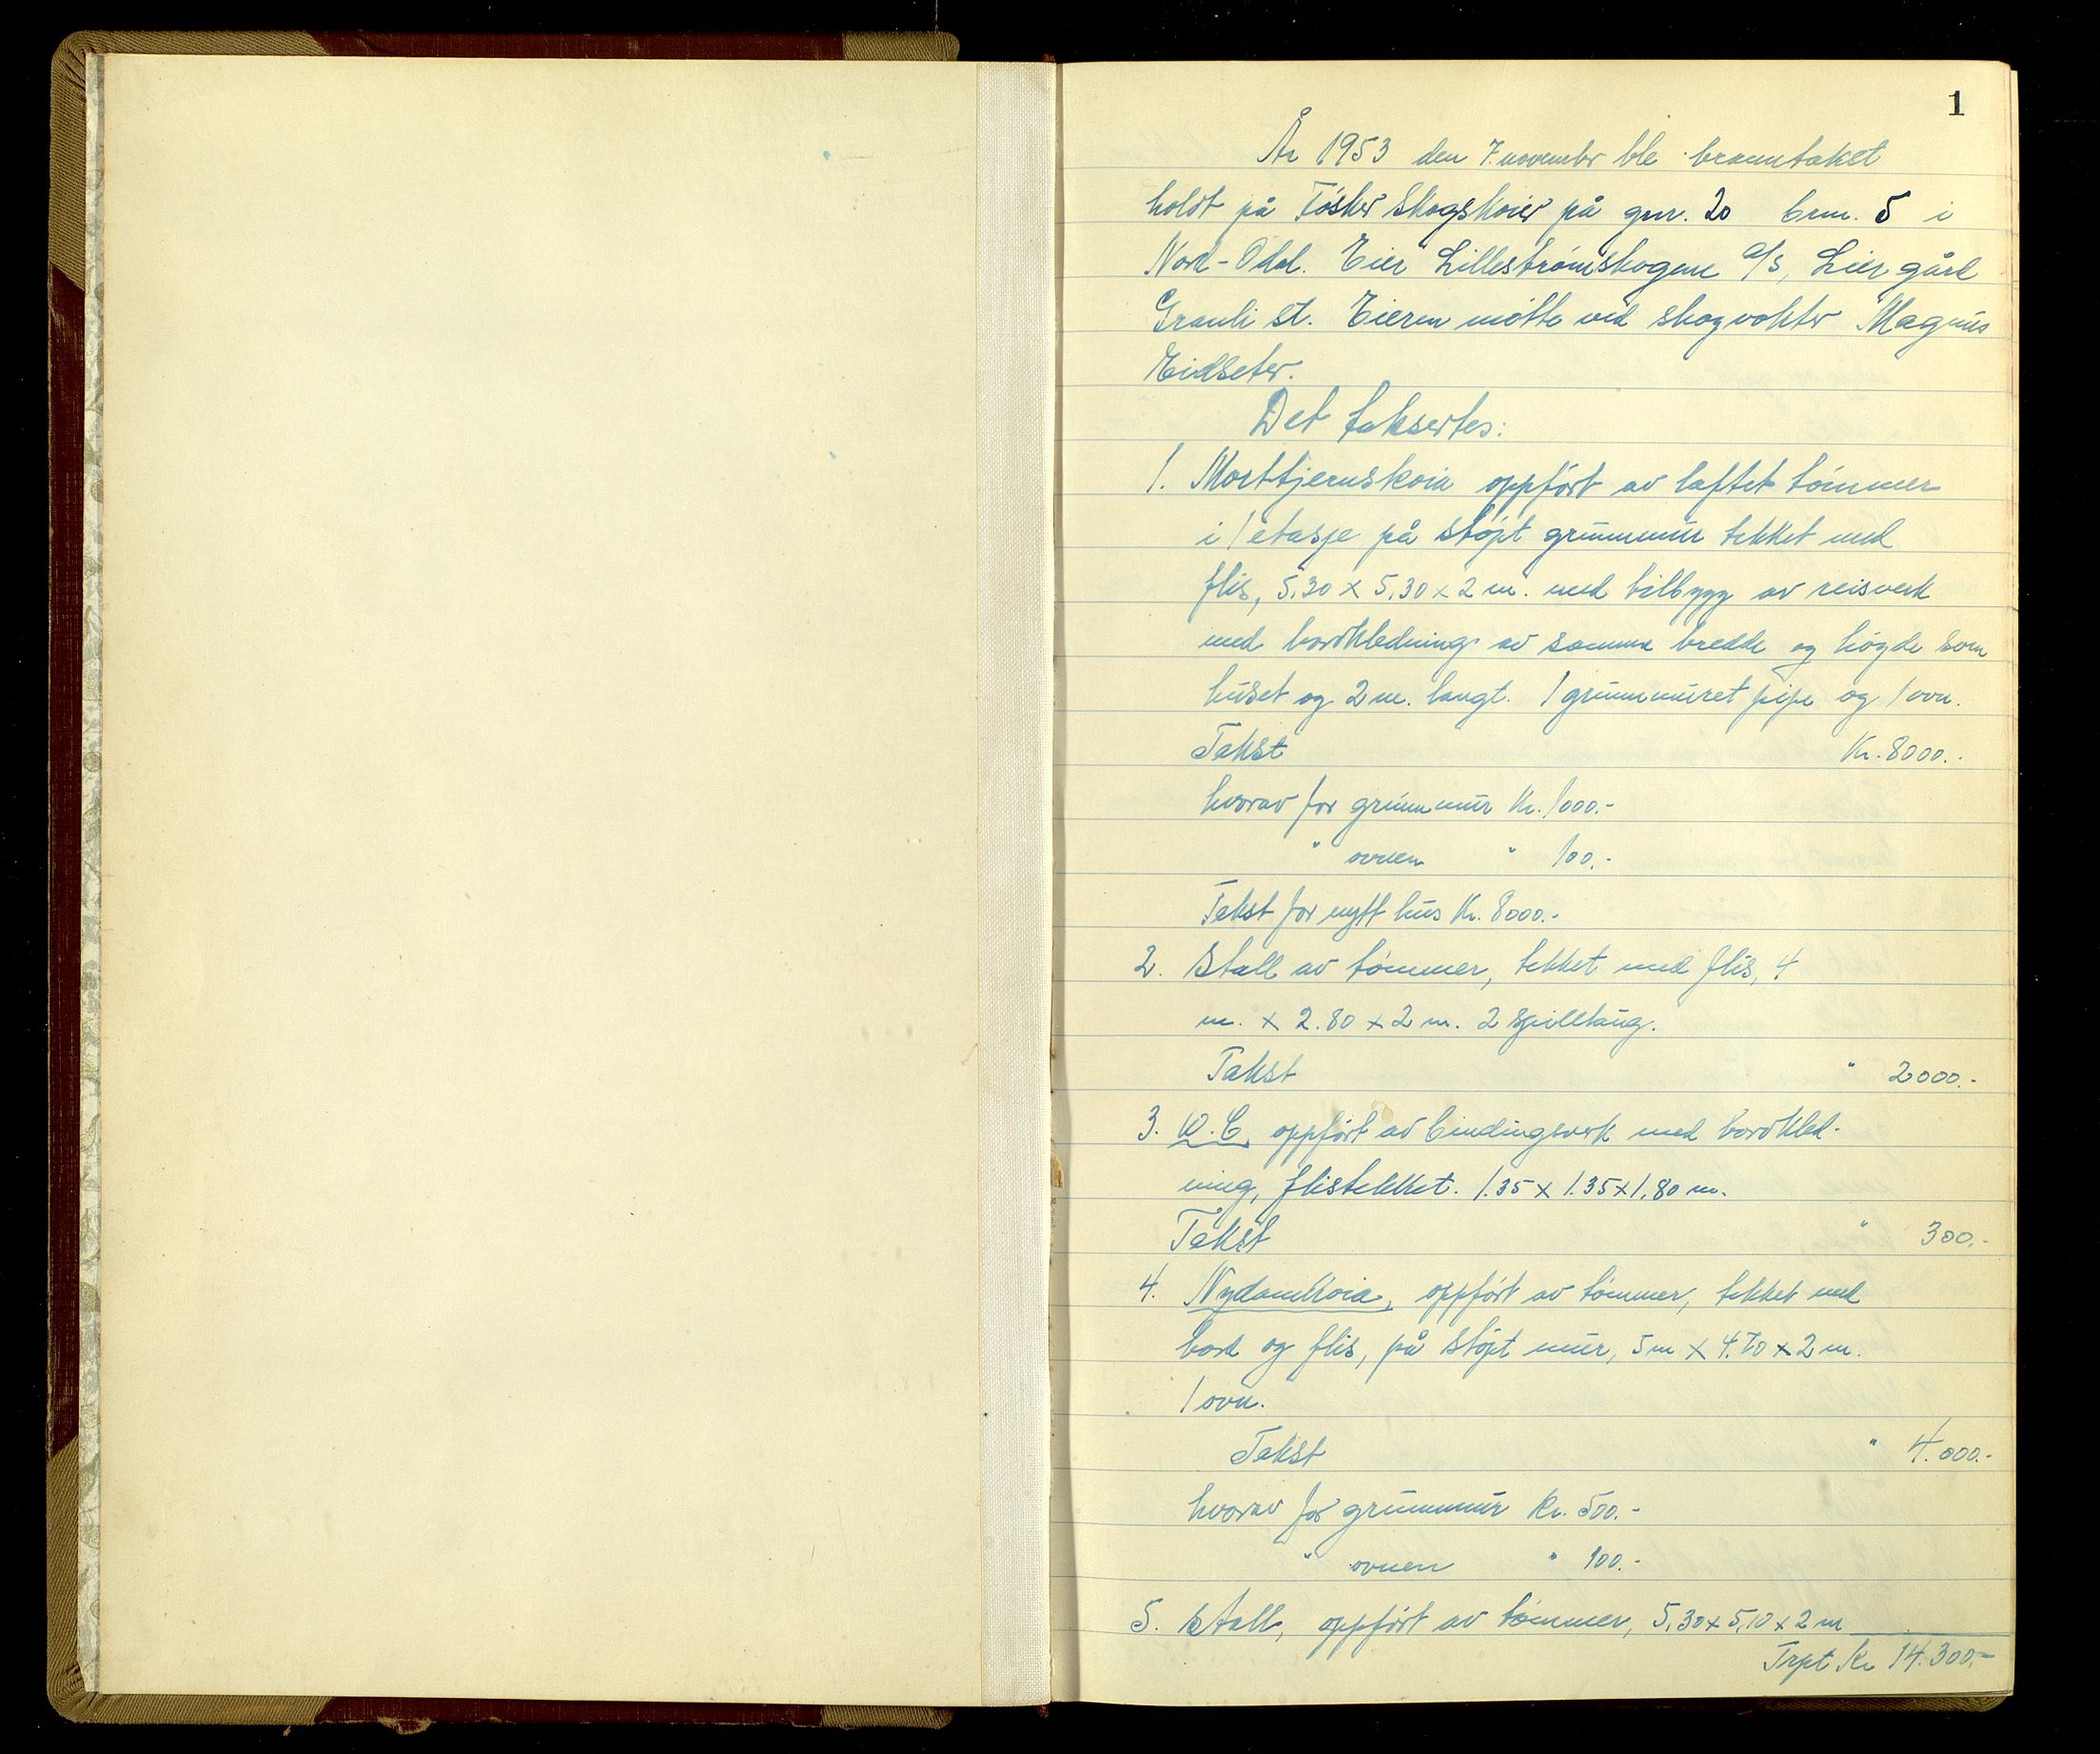 1
År 1953 den 7. novembr ble branntakst
holdt på Tösker Skogskoier på gnr. 20 brn. 5 i
Nord-Odal. Eier Lillestrømskogene A/S, Lier gård
Granli st. Eieren møtte ved skogvokter Magnus
Eidseter.
Det taksertes:
1. Morttjernskoia oppført av laftet tømmer
i 1 etasje på støpt grunnmur tekket med
flis, 5,30 x 5,30 x 2 m. med tilbygg av reisverk
med bordkledning av samme bredde og høgde som
huset og 2 m. langt. 1 grunnmuret pipe og 1 ovn.
Takst Kr. 8000.-
hvorav for grunnmur Kr. 1000.-
" ovnen " 100.-
Takst for nytt hus Kr. 8000.-
2. Stall av tømmer, tekket med flis, 4
m. x 2.80 x 2 m. 2 spilltaug.
Takst " 2000.-
3. W.C. oppført av bindingsverk med bordkled-
ning, flistekket. 1.35 x 1.35 x 1,80 m.
Takst " 300.-
4. Nydamkoia, oppført av tømmer, tekket med
bord og flis, på støpt mur, 5 m x 4.70 x 2 m.
1 ovn.
Takst " 4.000.-
hvorav for grunnmur Kr. 500.-
" ovnen " 100.-
5. Stall, oppført av tømmer, 5,30 x 5,10 x 2 m
Trpt Kr 14.300.-